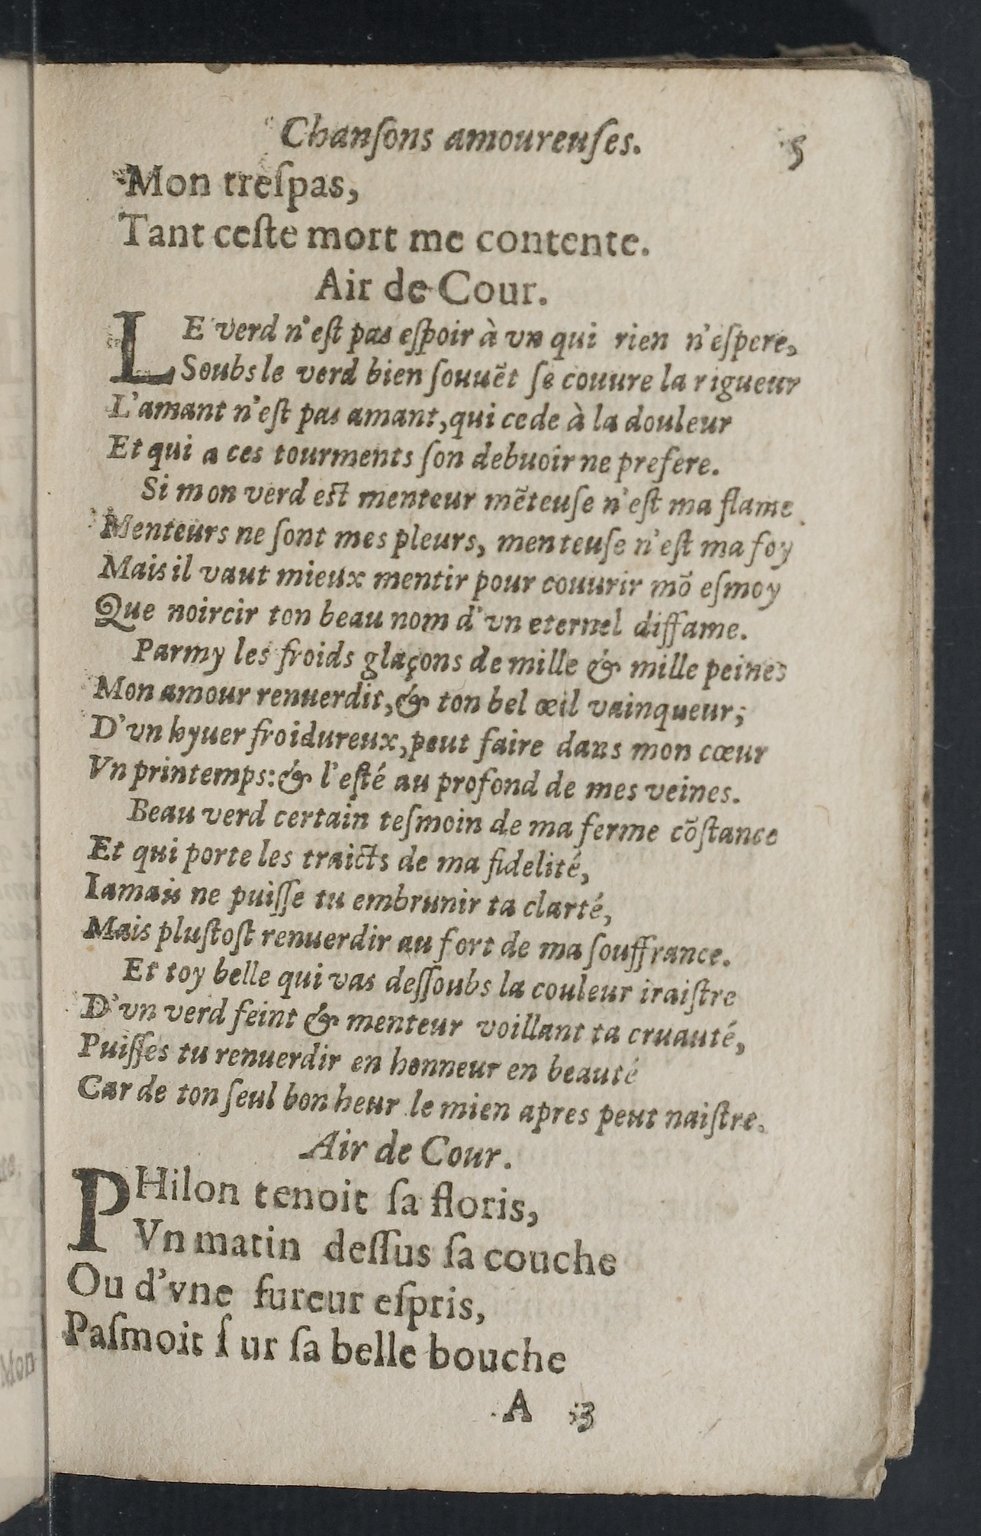 Chanſons amoureuſes. 5
Mon treſpas,
Tant ceſte mort me contente.
Air de Cour.
LE verd n'eſt pas eſpoir à vn qui rien n'eſpere,
Soubs le verd bien ſouuẽt ſe couure la rigueur
L'amant n'eſt pas amant, qui cede à la douleur
Et qui a ces tourments ſon debuoir ne prefere.
Si mon verd eſt menteur mẽteuſe n'eſt ma flame
Menteurs ne ſont mes pleurs, menteuſe n'eſt ma foy
Mais il vaut mieux mentir pour couurir mõ eſmoy
Que noircir ton beau nom d'vn eternel diffame.
Parmy les froids glaçons de mille & mille peines
Mon amour renuerdit, & ton bel œil vainqueur;
D'vn hyuer froidureux, peut faire dans mon cœur
Vn printemps: & l'eſté au profond de mes veines.
Beau verd certain teſmoin de ma ferme cõſtance
Et qui porte les traicts de ma fidelité,
Iamais ne puiſſe tu embrunir ta clarté,
Mais pluſtoſt renuerdir au fort de ma ſouffrance.
Et toy belle qui vas deſſoubs la couleur iraiſtre
D'vn verd feint & menteur voillant ta cruauté,
Puiſſes tu renuerdir en honneur en beauté
Car de ton ſeul bonheur le mien apres peut naiſtre.
Air de Cour.
PHilon tenoit ſa floris,
Vn matin deſſus ſa couche
Ou d'vne fureur eſpris,
Paſmoit ſ ur ſa belle bouche
A 3